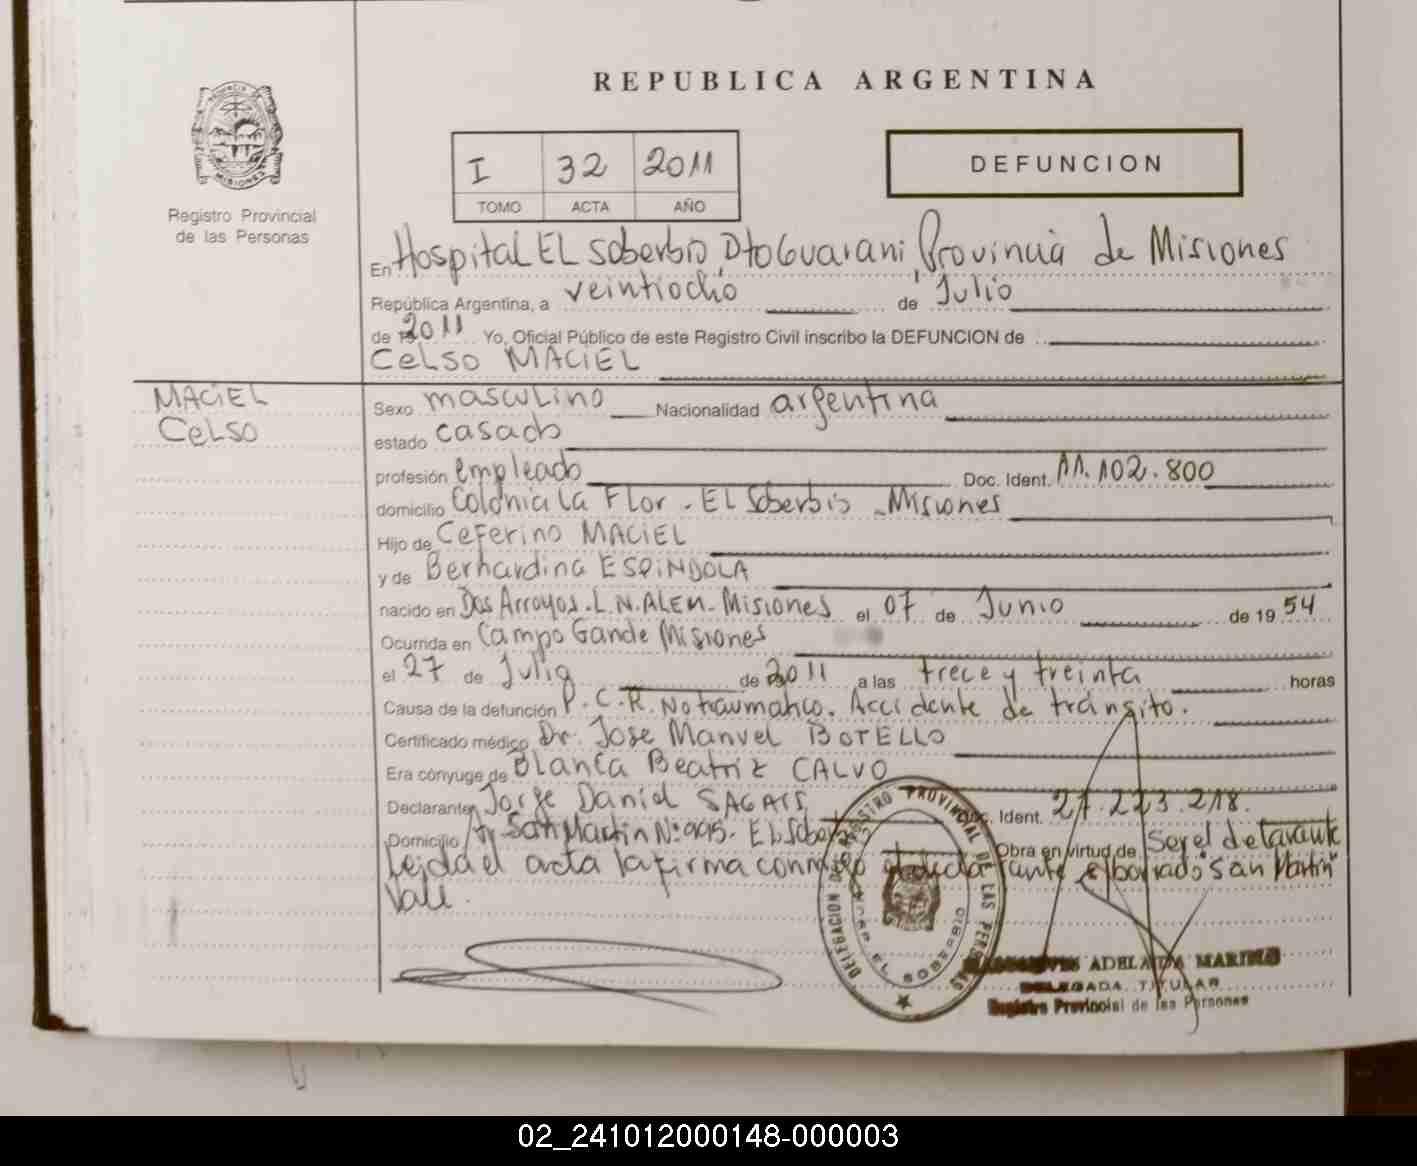 REPUBLICA ARGENTINA
I 32 2011
TOMO ACTA AÑO
DEFUNCION
PROVINCIA DE
MISIONES
Registro Provincial
de las Personas
En Hospital EL Soberbio, Dto Guarani, Provincia de Misiones
República Argentina, a veintiocho de Julio
de 2011 Yo, Oficial Público de este Registro Civil inscribo la DEFUNCION de
CELSO MACIEL
MACIEL
CELSO
Sexo masculino Nacionalidad argentina
estado casado
profesión empleado Doc. Ident. 11.102.800
domicilio Colonia La Flor - EL Soberbio - Misiones
Hijo de Ceferino MACIEL
y de Bernardina ESPINDOLA
nacido en Dos Arroyos - L.N.ALEM - Misiones el 07 de Junio de 1954
Ocurrida en Campo Gande Misiones
el 27 de Julio de 2011 a las trece y treinta horas
Causa de la defunción P.C.R. No traumatico. Accidente de tránsito.
Certificado médico Dr. Jose Manuel BOTELLO
Era cónyuge de Blanca Beatriz CALVO
Declarante Jorge Daniel Doc. Ident. 27.223.218.
Domicilio San Martin Nº 995 - EL Soberbio Obra en virtud de Ser el declarante
Leida el acta la firma conmigo "San Martin"
Vale.
DELEGACION DEL REGISTRO PROVINCIAL DE LAS PERSONAS
EL SOBERBIO
ADELAIDA MARINO
DELEGADA TITULAR
Registro Provincial de las Personas
02_241012000148-000003